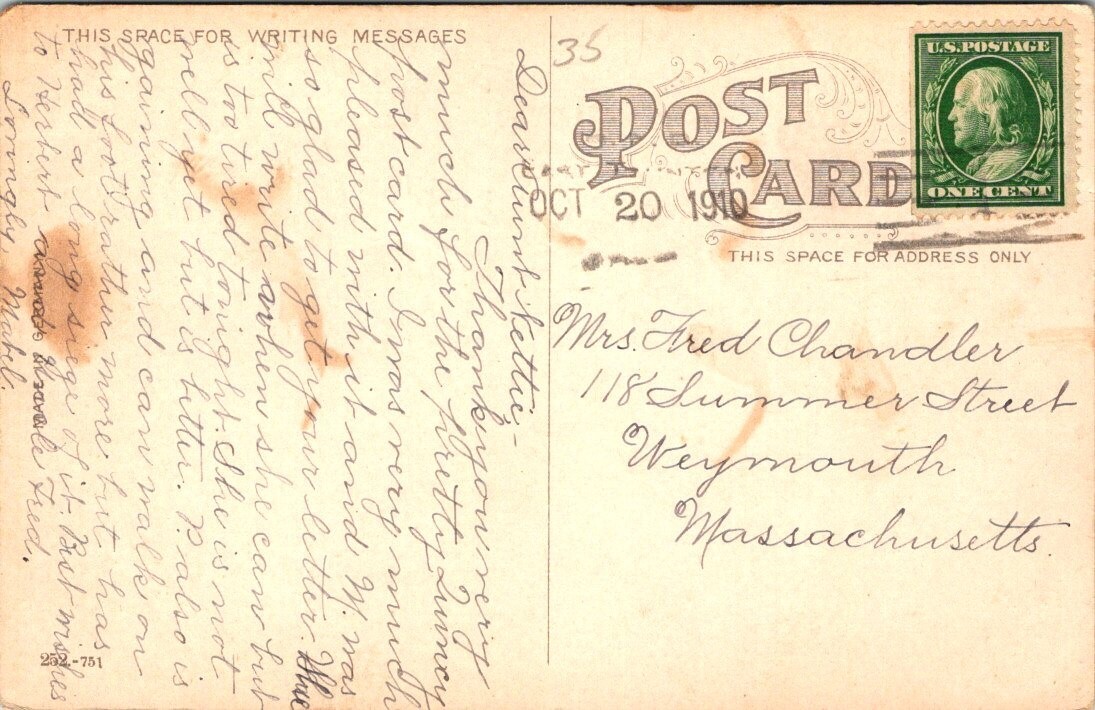 THIS SPACE FOR WRITING MESSAGES
Dear Aunt Nettie,-
Thank you very
much for the pretty Quincy
postcard. I was very much
pleased with it and W. was
so glad to get your letter. She
will write when she can but
is too tired tonight. She is not
well yet but is better. P. also is
gaining and can walk on
his foot rather more but has
had a long siege of it. Best wishes
to Herbert and Uncle Fred.
Lovingly, Mabel.
MADE IN GERMANY
252.-751
35
POST CARD
OCT 20 1910
U.S. POSTAGE
ONE CENT
THIS SPACE FOR ADDRESS ONLY
Mrs. Fred Chandler
118 Summer Street
Weymouth
Massachusetts.